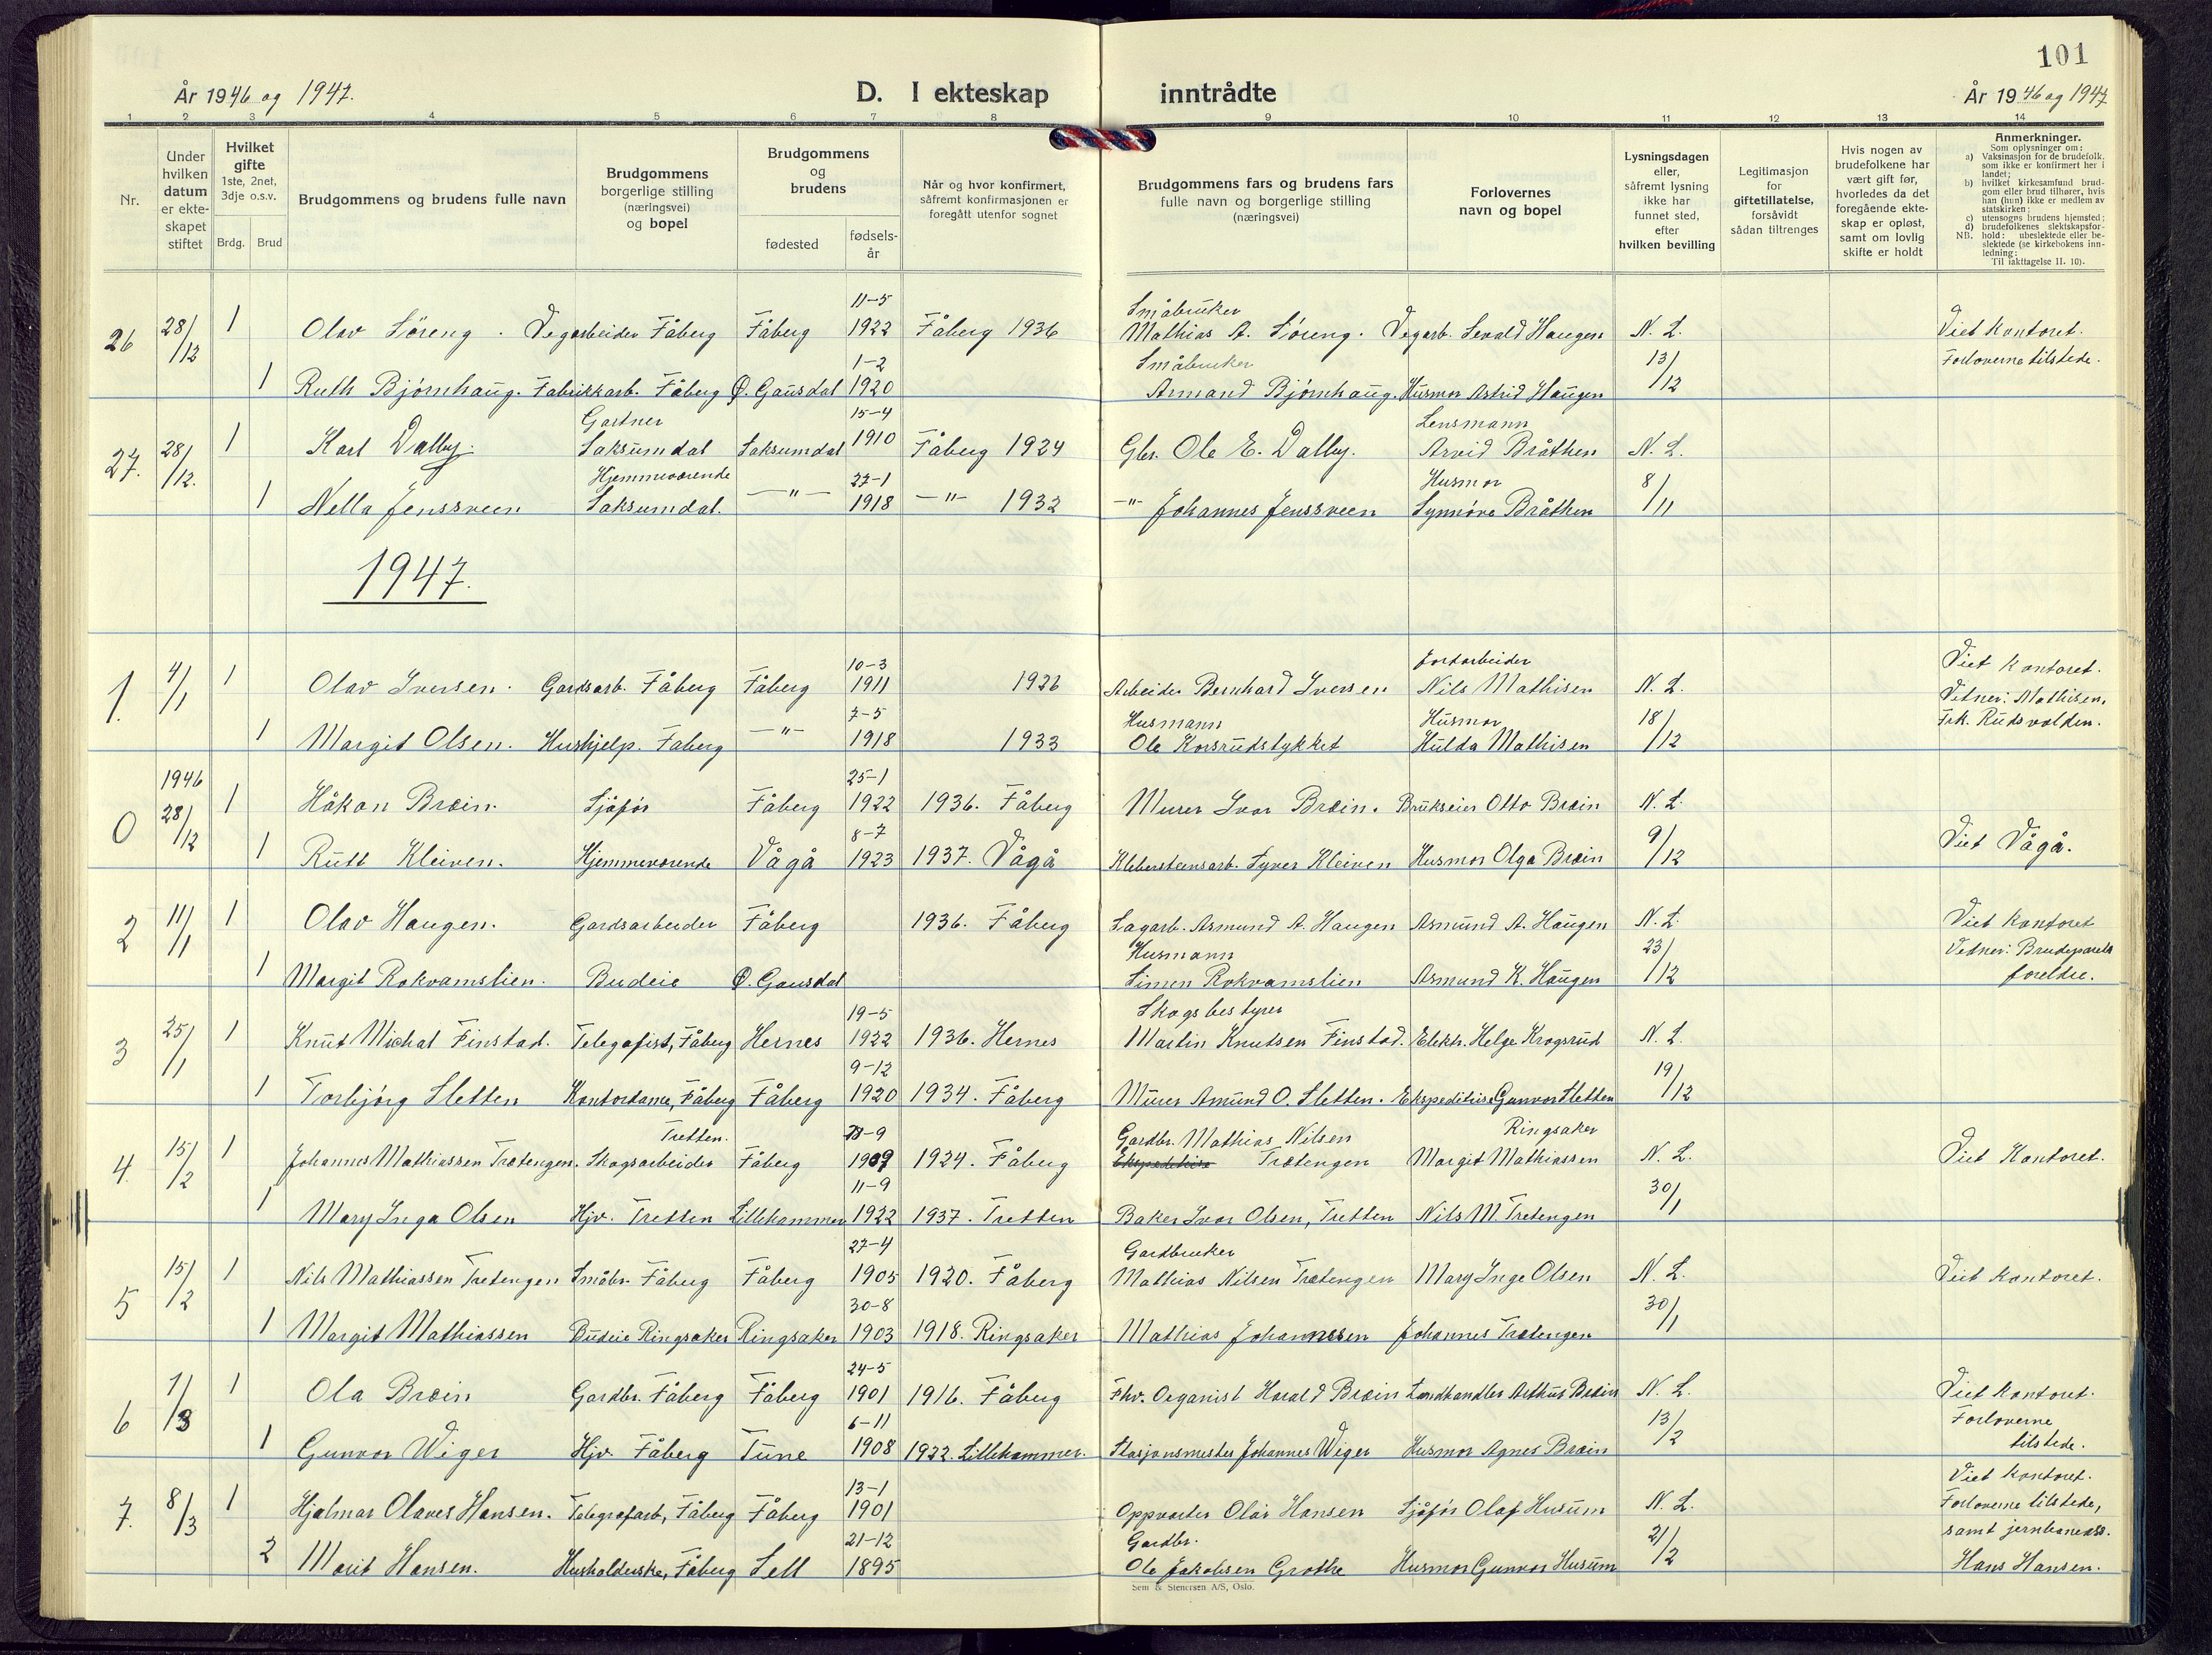 101
År 1946 og 1947.
D. I ekteskap inntrådte
År 1946 og 1947
1 2 3 4 5 6 7 8 9 10 11 12 13 14
Nr.
Under hvilken datum er ekteskapet stiftet
Hvilket gifte 1ste, 2net, 3dje o.s.v.
Brdg. Brud
Brudgommens og brudens fulle navn
Brudgommens borgerlige stilling (næringsvei) og bopel
Brudgommens og brudens
fødested
fødsels-år
Når og hvor konfirmert, såfremt konfirmasjonen er foregått utenfor sognet
Brudgommens fars og brudens fars fulle navn og borgerlige stilling (næringsvei)
Forlovernes navn og bopel
Lysningsdagen eller, såfremt lysning ikke har funnet sted, efter hvilken bevilling
Legitimasjon for giftetillatelse, forsåvidt sådan tiltrenges
Hvis nogen av brudefolkene har vært gift før, hvorledes da det foregående ekteskap er opløst, samt om lovlig skifte er holdt
Anmerkninger.
Som oplysninger om:
a) Vaksinasjon for de brudefolk. som ikke er konfirmert her i landet;
b) hvilket kirkesamfund brudgom eller brud tilhører, hvis han (hun) ikke er medlem av statskirken;
c) utensogns brudens hjemsted;
d) brudefolkenes slektskapsforhold: ubeslektede eller beslektede (se kirkebokens innledning;
NB.
Til iakttagelse II. 10).
11-5 Småbruker
26 28/12 1 Olav Løreng. Vegarbeider Fåberg Fåberg 1922 Fåberg 1936 Mathias A. Løreng. Vegarb. Sevald Haugen N. L. Viet kontoret.
1-2 Småbruker 13/12 Forloverne tilstede.
1 Ruth Bjørnhaug. Fabrikkarb. Fåberg Ø. Gausdal 1920 Armand Bjørnhaug. Husmor Astrid Haugen
Gartner 15-4 Lensmann
27. 28/12. 1 Karl Dalby. Saksumdal Saksumdal 1910 Fåberg 1924 Gbr. Ole E. Dalby. Arvid Bråthen N. L.
Hjemmeværende 27-1 Husmor 8/11
1 Nella Jenssveen Saksumdal. —"— 1918 —"— 1932 —"— Johannes Jenssveen Synnøve Bråthen
1947.
10-3 Jordarbeider Viet kontoret.
1. 4/1 1 Olav Iversen. Gardsarb. Fåberg Fåberg 1911 1926 Arbeider Bernhard Iversen Nils Mathisen N. L. Vitner: Mathisen,
7-5 Husmann Husmor 18/12 Frk. Rudsvolden.
1 Margit Olsen. Hushjelp. Fåberg —"— 1918 1933 Ole Korsrudstykket Hulda Mathisen
1946 25-1
0 28/12 1 Håkon Bræin. Sjåfør Fåberg 1922 1936. Fåberg Murer Ivar Bræin. Brukseier Otto Bræin N. L.
8-7 9/12 Viet Vågå.
1 Rutt Kleiven. Hjemmeværende Vågå 1923 1937. Vågå Klebersteinsarb. Syver Kleiven Husmor Olga Bræin
2 11/1 1 Olav Haugen. Gardsarbeider Fåberg 1936. Fåberg Sagarb. Asmund A. Haugen Asmund A. Haugen N. L. Viet kontoret
Husmann 23/12 Vitner: Brudeparets
1 Margit Rokvamslien. Budeie Ø. Gausdal Simen Rokvamslien Asmund K. Haugen foreldre.
19-5 Skogsbestyrer
3 25/1 1 Knut Michal Finstad. Telegrafist, Fåberg Hernes 1922 1936. Hernes Martin Knutsen Finstad. Elektr. Helge Krogsrud N. L.
9-12 19/12
1 Torbjørg Sletten Kontordame, Fåberg Fåberg 1920 1934. Fåberg Murer Amund O. Sletten. Ekspeditrise Gunvor Sletten
Tretten. -9 Gardbr. Mathias Nilsen Ringsaker
4. 15/2 1 Johannes Mathiassen Trætengen. Skogsarbeider Fåberg 1909 1924. Fåberg Ekspeditrise Trætengen Margit Mathiassen N. L. Viet Kontoret.
11-9 30/1
1 Mary Inga Olsen Hjv. Tretten Lillehammer 1922 1937. Tretten Baker Ivar Olsen, Tretten Nils M. Tretengen
27-4 Gardbruker
5 15/2 1 Nils Mathiassen Tretengen Småbr. Fåberg Fåberg 1905 1920. Fåberg Mathias Nilsen Trætengen Mary Inge Olsen N. L. Viet kontoret.
30-8 30/1
1 Margit Mathiassen Budeie Ringsaker Ringsaker 1903 1918. Ringsaker Mathias Johannssen Johannes Trætengen
24-5
6 1/3 1 Ola Bræin Gardbr. Fåberg Fåberg 1901 1916. Fåberg Fhv. Organist Harald Bræin Landhandler Arthur Bræin N. L. Viet kontoret.
6-11 13/2 Forloverne
1 Gunvor Wiger Hjv. Fåberg Tune 1908 1922. Lillehammer. Stasjonsmester Johannes Wiger Husmor Agnes Bræin tilstede.
13-1 Viet kontoret.
7. 8/3 1 Hjalmar Olaves Hansen. Telegrafarb, Fåberg Fåberg 1901 Oppvarter Olav Hansen Sjåfør Olaf Husum N. L. Forloverne tilstede,
21-12 Gardbr. 21/2 samt jernbaneass.
2 Marit Hansen. Husholderske, Fåberg Sell 1895 Ole Jakobsen Grothe Husmor Gunvor Husum Hans Hansen.
Sem & Stenersen A/S, Oslo.